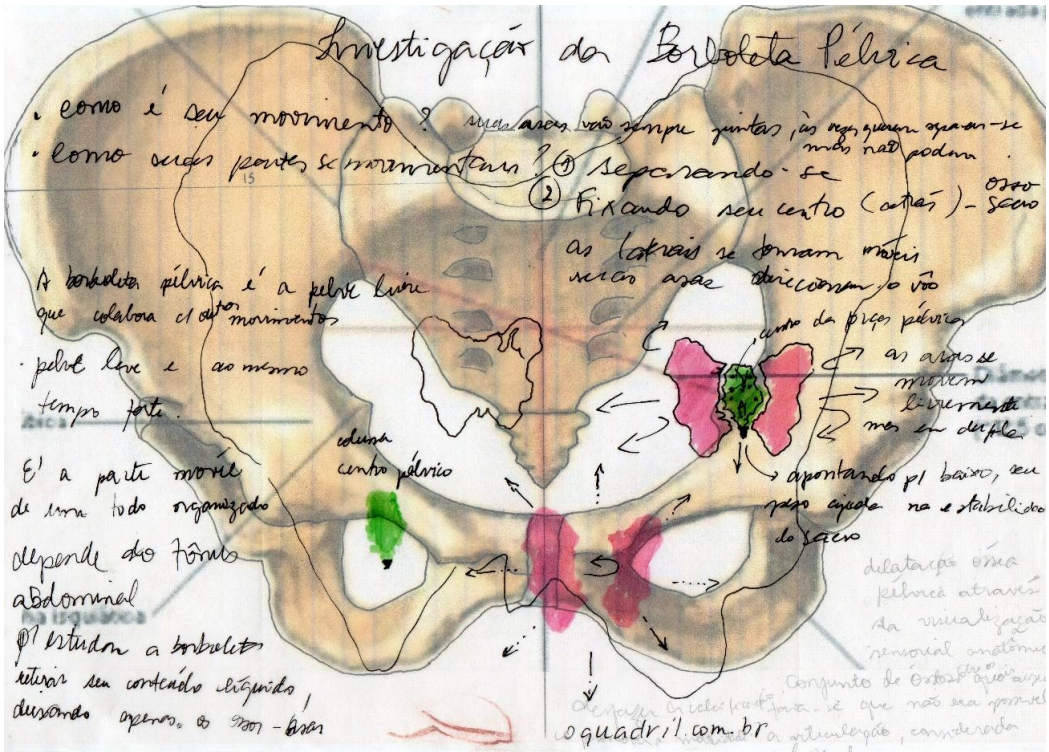 Investigação da Borboleta Pélvica
• como é seu movimento? suas asas vão sempre juntas, às vezes querem separar-se
mas não podem.
• como suas partes se movimentam? ① separando-se
② Fixando seu centro (atrás) - osso sacro
as laterais se tornam móveis
serão asas direcionam o vôo
A borboleta pélvica é a pelve livre
que colabora c/ outros movimentos
• pelve leve e ao mesmo
tempo forte.
É a parte móvel
de um todo organizado
depende do tônus
abdominal
p/ estudar a borboleta
retirar seu conteúdo líquido
deixando apenas os ossos-asas
coluna
centro pélvico
centro da pélvica
as asas se
movem
livremente
mas em dupla
apontando p/ baixo, seu
peso ajuda na estabilidade
do sacro
dilatação óssea
pélvica através
da visualização
sensorial anatômica
conjunto de
que não era possível
a articulação, considerada
oquadril.com.br
entrada p
15
Diâme
5 c
ática
na isquiática